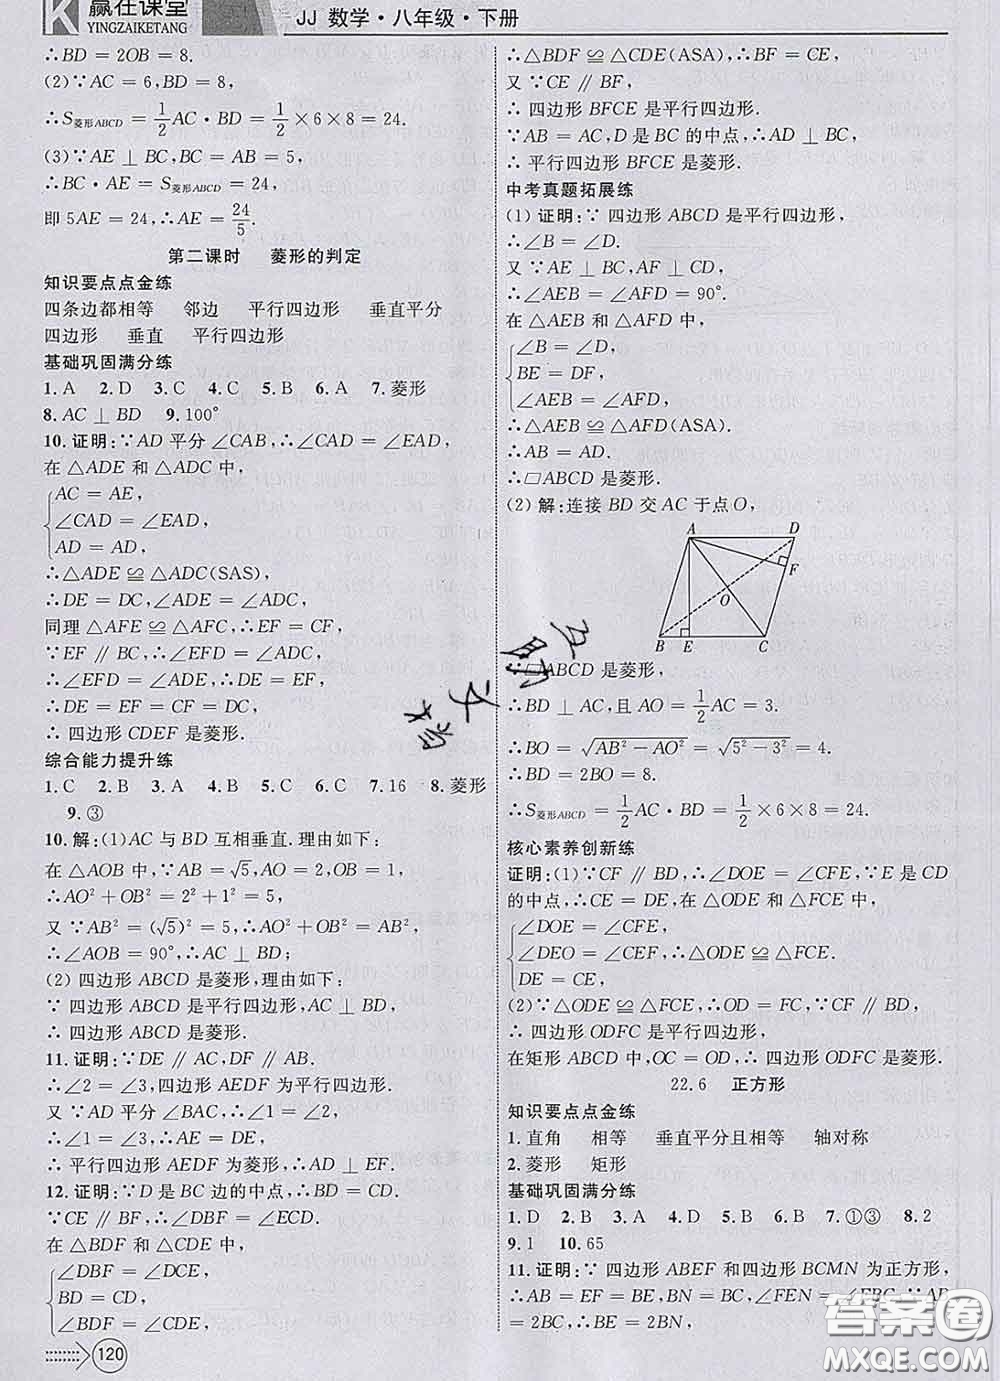 赢在课堂
YINGZAIKETANG
JJ 数学·八年级·下册
∴BD=2OB=8.
(2)∵AC=6,BD=8,
∴S菱形ABCD=1/2AC·BD=1/2×6×8=24.
(3)∵AE⊥BC,BC=AB=5,
∴BC·AE=S菱形ABCD=24,
即5AE=24,∴AE=24/5.
第二课时 菱形的判定
知识要点点金练
四条边都相等 邻边 平行四边形 垂直平分
四边形 垂直 平行四边形
基础巩固满分练
1.A 2.D 3.C 4.C 5.B 6.A 7.菱形
8.AC⊥BD 9.100°
10.证明:∵AD平分∠CAB,∴∠CAD=∠EAD,
在△ADE和△ADC中,
AC=AE,
∠CAD=∠EAD,
AD=AD,
∴△ADE≌△ADC(SAS),
∴DE=DC,∠ADE=∠ADC,
同理△AFE≌△AFC,∴EF=CF,
∵EF∥BC,∴∠EFD=∠ADC,
∴∠EFD=∠ADE,∴DE=EF,
∴DE=EF=CF=DC,
∴四边形CDEF是菱形.
综合能力提升练
1.C 2.B 3.A 4.B 5.C 6.C 7.16 8.菱形
9.③
10.解:(1)AC与BD互相垂直.理由如下:
在△AOB中,∵AB=√5,AO=2,OB=1,
∴AO²+OB²=2²+1²=5,
又∵AB²=(√5)²=5,∴AO²+OB²=AB²,
∴∠AOB=90°,∴AC⊥BD;
(2)四边形ABCD是菱形,理由如下:
∵四边形ABCD是平行四边形,AC⊥BD,
∴四边形ABCD是菱形.
11.证明:∵DE∥AC,DF∥AB.
∴∠2=∠3,四边形AEDF为平行四边形.
又∵AD平分∠BAC,∴∠1=∠2,
∴∠1=∠3,∴AE=DE,
∴平行四边形AEDF为菱形,∴AD⊥EF.
12.证明:∵D是BC边的中点,∴BD=CD.
∵CE∥BF,∴∠DBF=∠ECD.
在△BDF和△CDE中,
∠DBF=∠DCE,
BD=CD,
∠BDF=∠CDE,
120
∴△BDF≌△CDE(ASA),∴BF=CE,
又∵CE∥BF,
∴四边形BFCE是平行四边形.
∵AB=AC,D是BC的中点,∴AD⊥BC,
∴平行四边形BFCE是菱形.
中考真题拓展练
(1)证明:∵四边形ABCD是平行四边形,
∴∠B=∠D.
又∵AE⊥BC,AF⊥CD,
∴∠AEB=∠AFD=90°.
在△AEB和△AFD中,
∠B=∠D,
BE=DF,
∠AEB=∠AFD,
∴△AEB≌△AFD(ASA).
∴AB=AD.
∴□ABCD是菱形.
(2)解:连接BD交AC于点O,
A D
F
O
B E C
∴□ABCD是菱形,
∴BD⊥AC,且AO=1/2AC=3.
∴BO=√AB²-AO²=√5²-3²=4.
∴BD=2BO=8.
∴S菱形ABCD=1/2AC·BD=1/2×6×8=24.
核心素养创新练
证明:(1)∵CF∥BD,∴∠DOE=∠CFE,∵E是CD
的中点,∴CE=DE,在△ODE和△FCE中,
∠DOE=∠CFE,
∠DEO=∠CEF,∴△ODE≌△FCE.
DE=CE,
(2)∵△ODE≌△FCE,∴OD=FC,∵CF∥BD,
∴四边形ODFC是平行四边形,
在矩形ABCD中,OC=OD,∴四边形ODFC是菱形.
22.6 正方形
知识要点点金练
1.直角 相等 垂直平分且相等 轴对称
2.菱形 矩形
基础巩固满分练
1.D 2.B 3.A 4.D 5.B 6.B 7.①③ 8.2
9.1 10.65
11.证明:∵四边形ABEF和四边形BCMN为正方形,
∴AB=EF=BE,BN=BC,∠FEN=∠EBC,∵AB
=2BC,∴BE=2BN,
答案圈
MXQE.COM